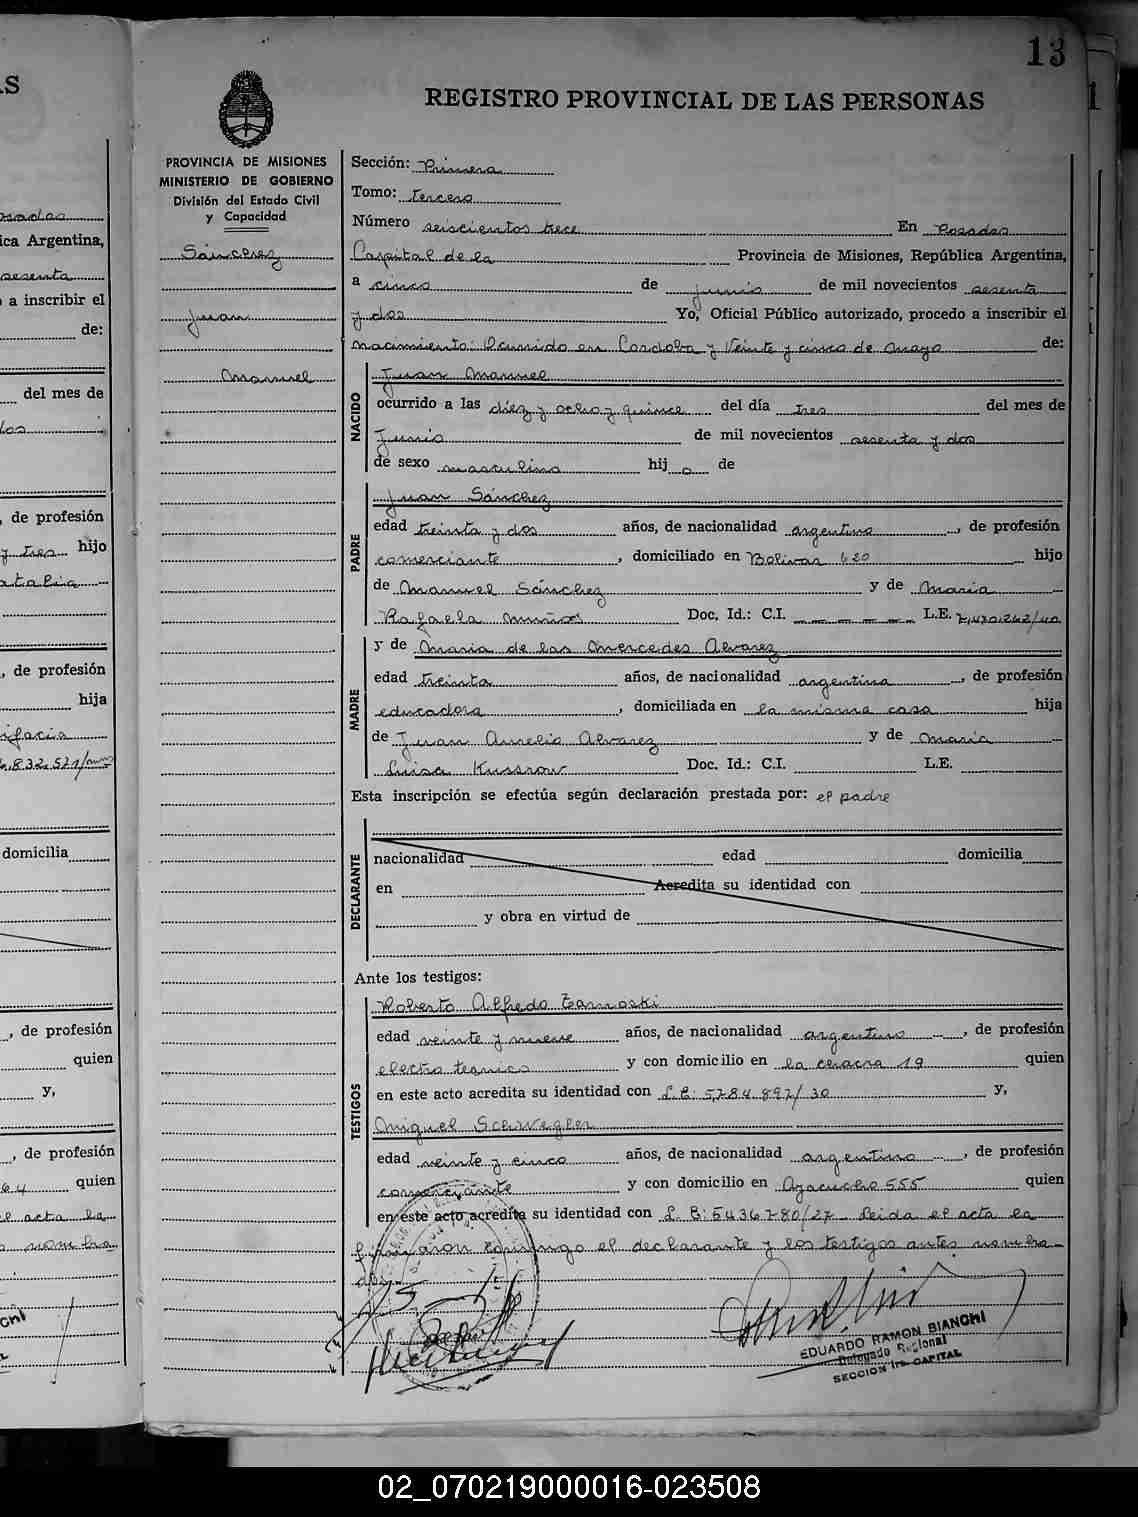 13
REGISTRO PROVINCIAL DE LAS PERSONAS
PROVINCIA DE MISIONES
MINISTERIO DE GOBIERNO
División del Estado Civil
y Capacidad
Sánchez
Juan
Manuel
Sección: Primera
Tomo: tercero
Número seiscientos trece En Posadas
Capital de la Provincia de Misiones, República Argentina,
a cinco de junio de mil novecientos sesenta
y dos Yo, Oficial Público autorizado, procedo a inscribir el
nacimiento: Ocurrido en Cordoba y Veinte y cinco de mayo de:
NACIDO
Juan Manuel
ocurrido a las diez y ocho y quince del día tres del mes de
Junio de mil novecientos sesenta y dos
de sexo masculino hijo de
PADRE
Juan Sánchez
edad treinta y dos años, de nacionalidad argentino, de profesión
comerciante, domiciliado en Bolivar 620 hijo
de Manuel Sánchez y de Maria
Rafaela Muños Doc. Id.: C.I. L.E. 7.470.262/40
MADRE
y de Maria de las Mercedes Alvarez
edad treinta años, de nacionalidad argentina, de profesión
educadora, domiciliada en la misma casa hija
de Juan Amelio Alvarez y de Maria
Luisa Kussrow Doc. Id.: C.I. L.E.
Esta inscripción se efectúa según declaración prestada por: el padre
DECLARANTE
nacionalidad edad domicilia
en Acredita su identidad con
y obra en virtud de
Ante los testigos:
TESTIGOS
Roberto Alfredo Zarnoski
edad veinte y nueve años, de nacionalidad argentino, de profesión
electro tecnico y con domicilio en la chacra 19 quien
en este acto acredita su identidad con L.E: 5784.897/30 y,
Miguel Schvegler
edad veinte y cinco años, de nacionalidad argentino, de profesión
comerciante y con domicilio en Ayacucho 555 quien
en este acto acredita su identidad con L.E: 5436780/27 Leida el acta la
firmaron conmigo el declarante y los testigos antes nombra-
dos
EDUARDO RAMON BIANCHI
Delegado Regional
SECCION 1ra CAPITAL
02_070219000016-023508